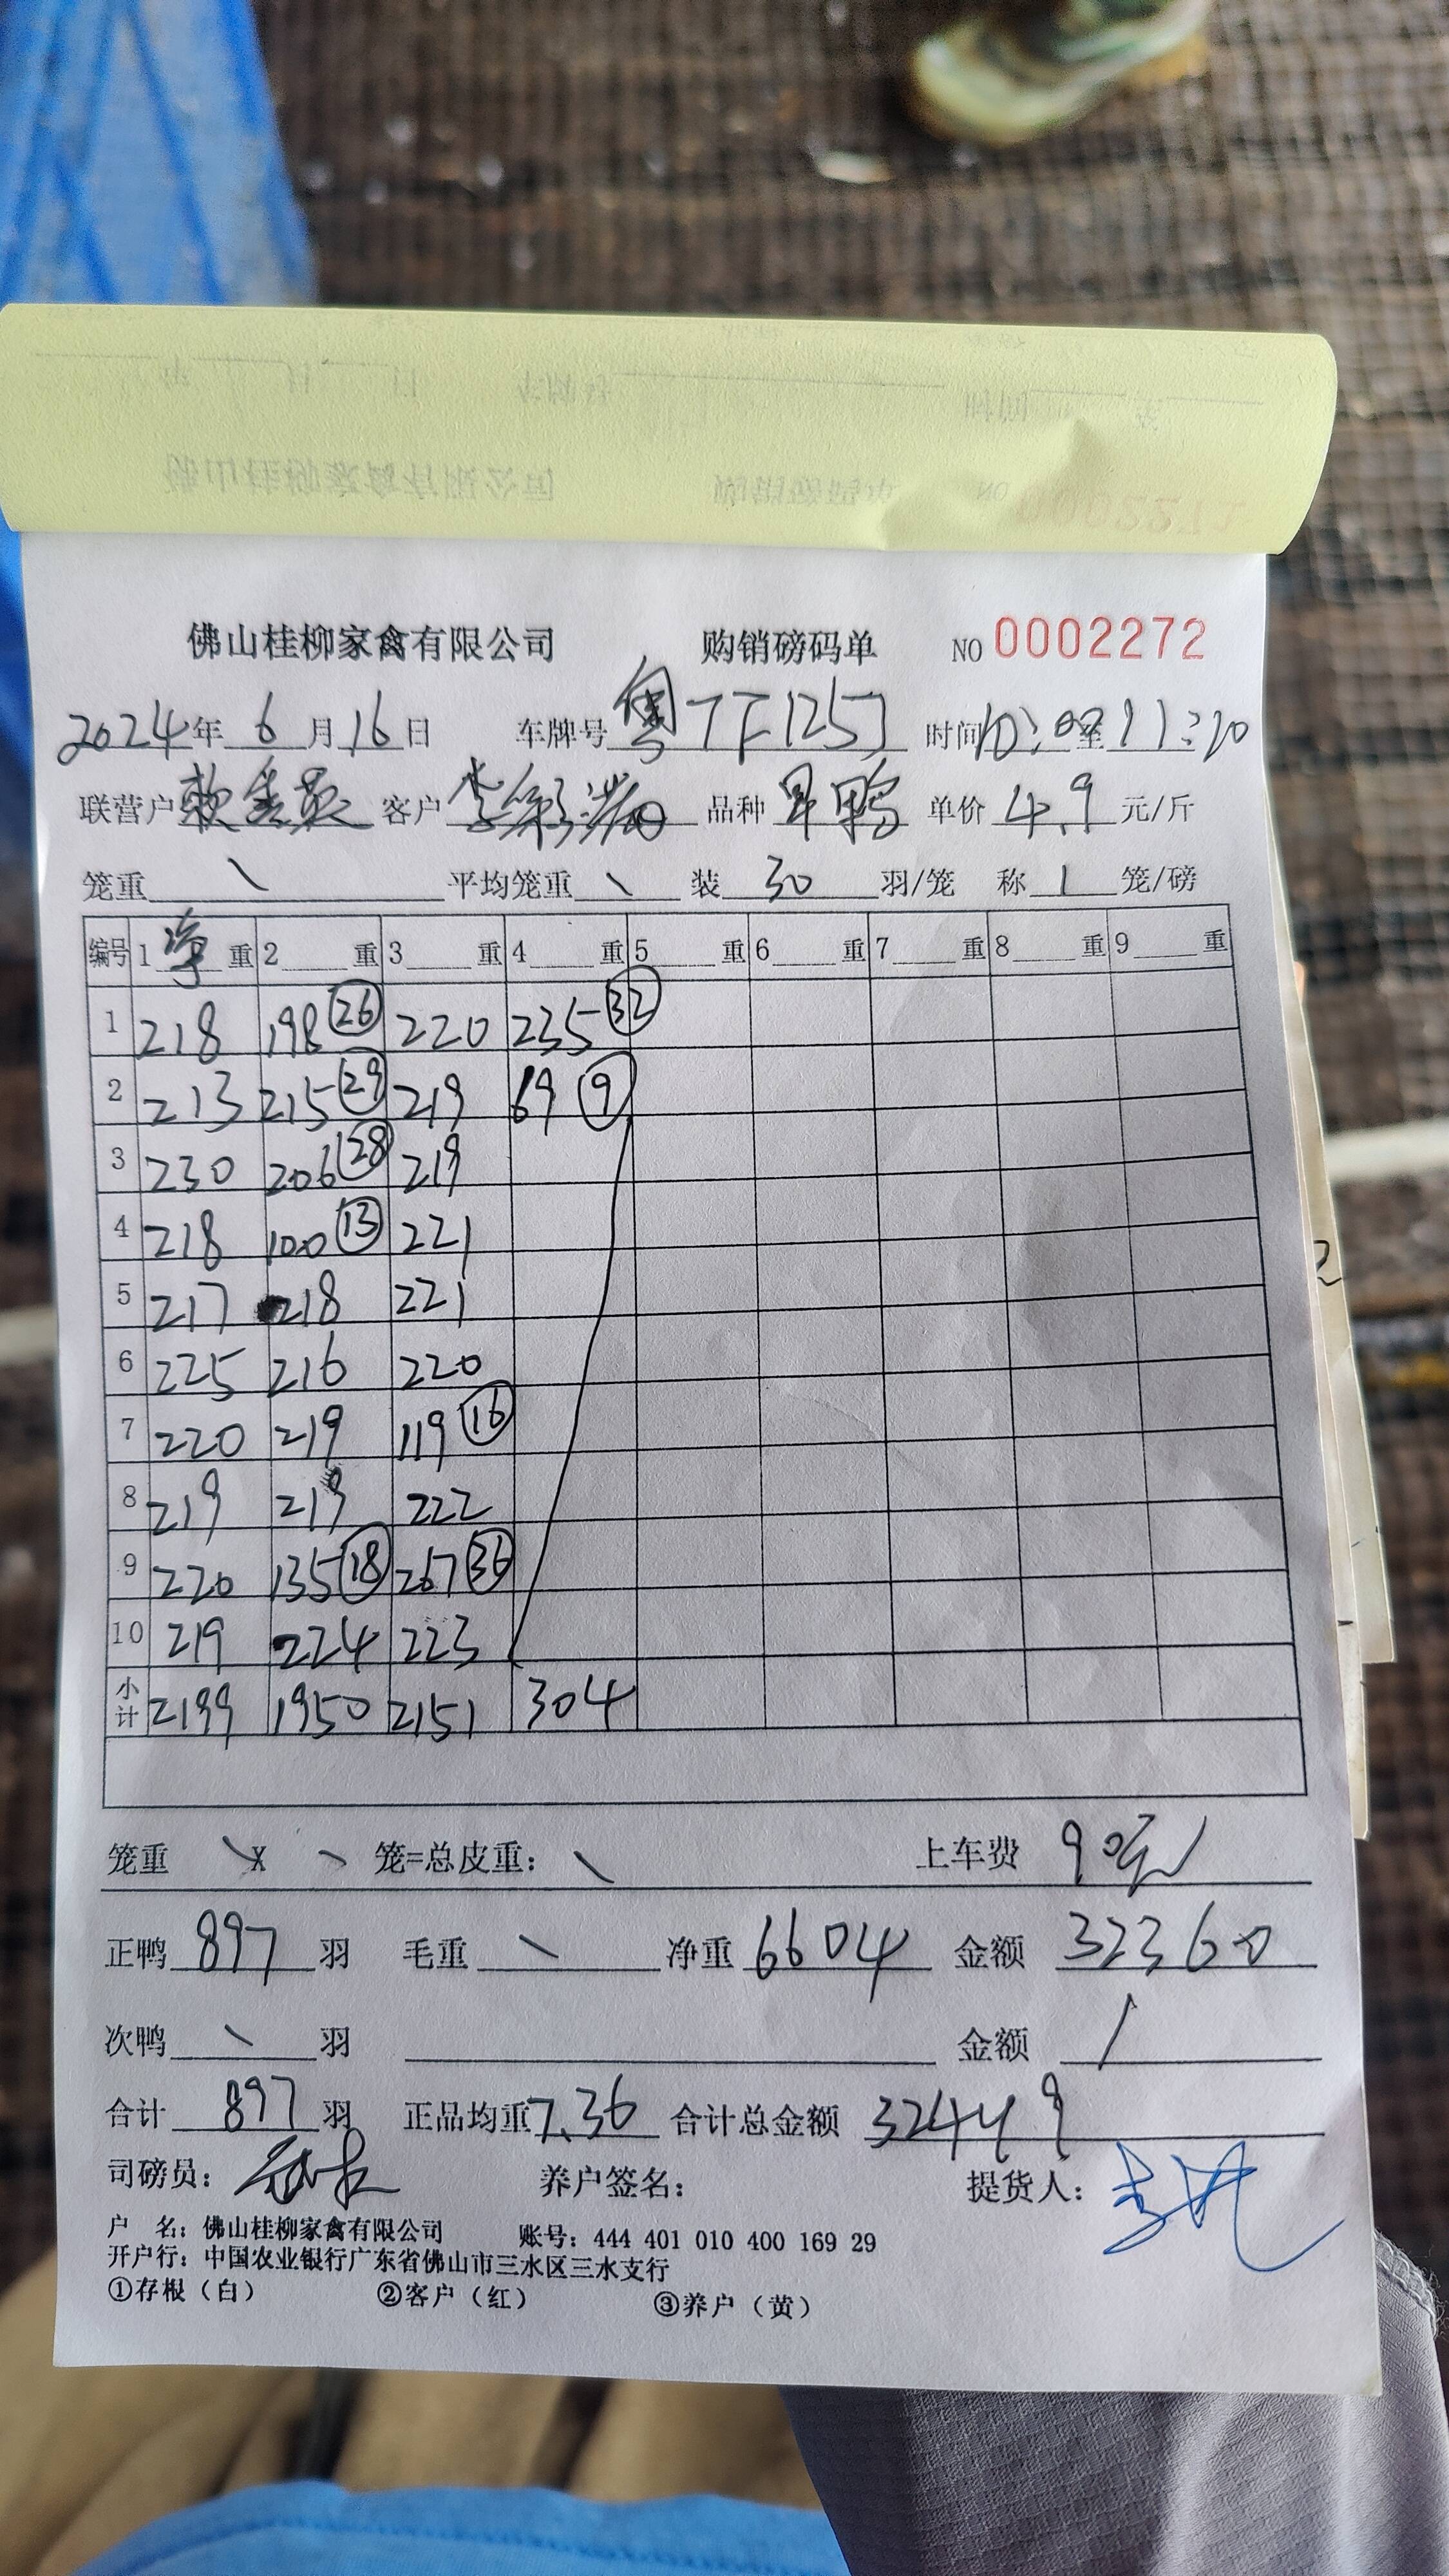 佛山桂柳家禽有限公司 购销磅码单 NO 0002272
2024年 6 月 16 日 车牌号 粤TF125J 时间10:08至11:20
联营户 客户 李 品种 旱鸭 单价 4.9 元/斤
笼重 \ 平均笼重 \ 装 30 羽/笼 称 1 笼/磅
编号 1 净 重 2 重 3 重 4 重 5 重 6 重 7 重 8 重 9 重
1 218 198 26 220 235 32
2 213 215 29 219 69 9
3 230 206 28 219
4 218 100 13 221
5 217 218 221
6 225 216 220
7 220 219 119 16
8 219 219 222
9 220 135 18 267 36
10 219 224 223
小计 2199 1950 2151 304
笼重 \ X \ 笼=总皮重: \ 上车费 90元
正鸭 897 羽 毛重 \ 净重 6604 金额 32360
次鸭 \ 羽 金额 /
合计 897 羽 正品均重 7.36 合计总金额 32449
司磅员: 养户签名: 提货人:
户 名: 佛山桂柳家禽有限公司 账号: 444 401 010 400 169 29
开户行: 中国农业银行广东省佛山市三水区三水支行
①存根(白) ②客户(红) ③养户(黄)